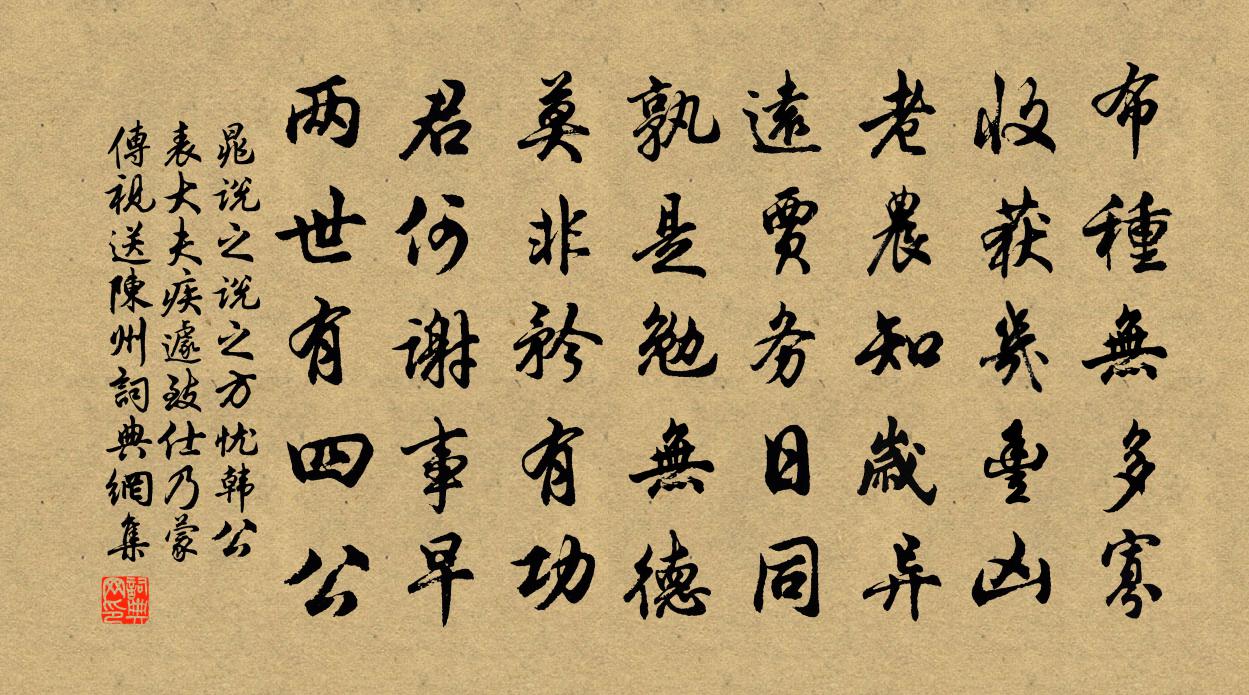 布種無多寡
收获幾豐凶
老農知歲异
遠賈务日同
孰是勉無德
莫非矜有功
君何謝事早
两世有四公
晁说之说之方忧韩公
表大夫疾遽致仕乃蒙
傳視送陳州詞典網集
詞典網印